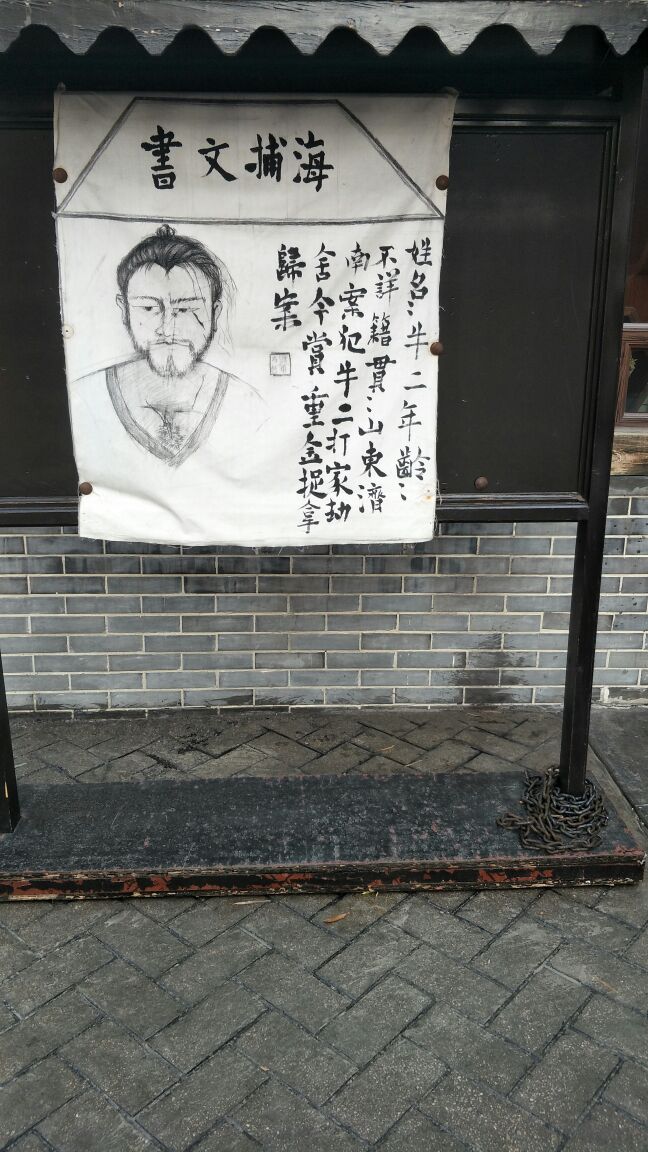 海捕文書
姓名：牛二年齡：
不詳籍貫：山東濟
南案犯牛二打家劫
舍今賞重金捉拿
歸案